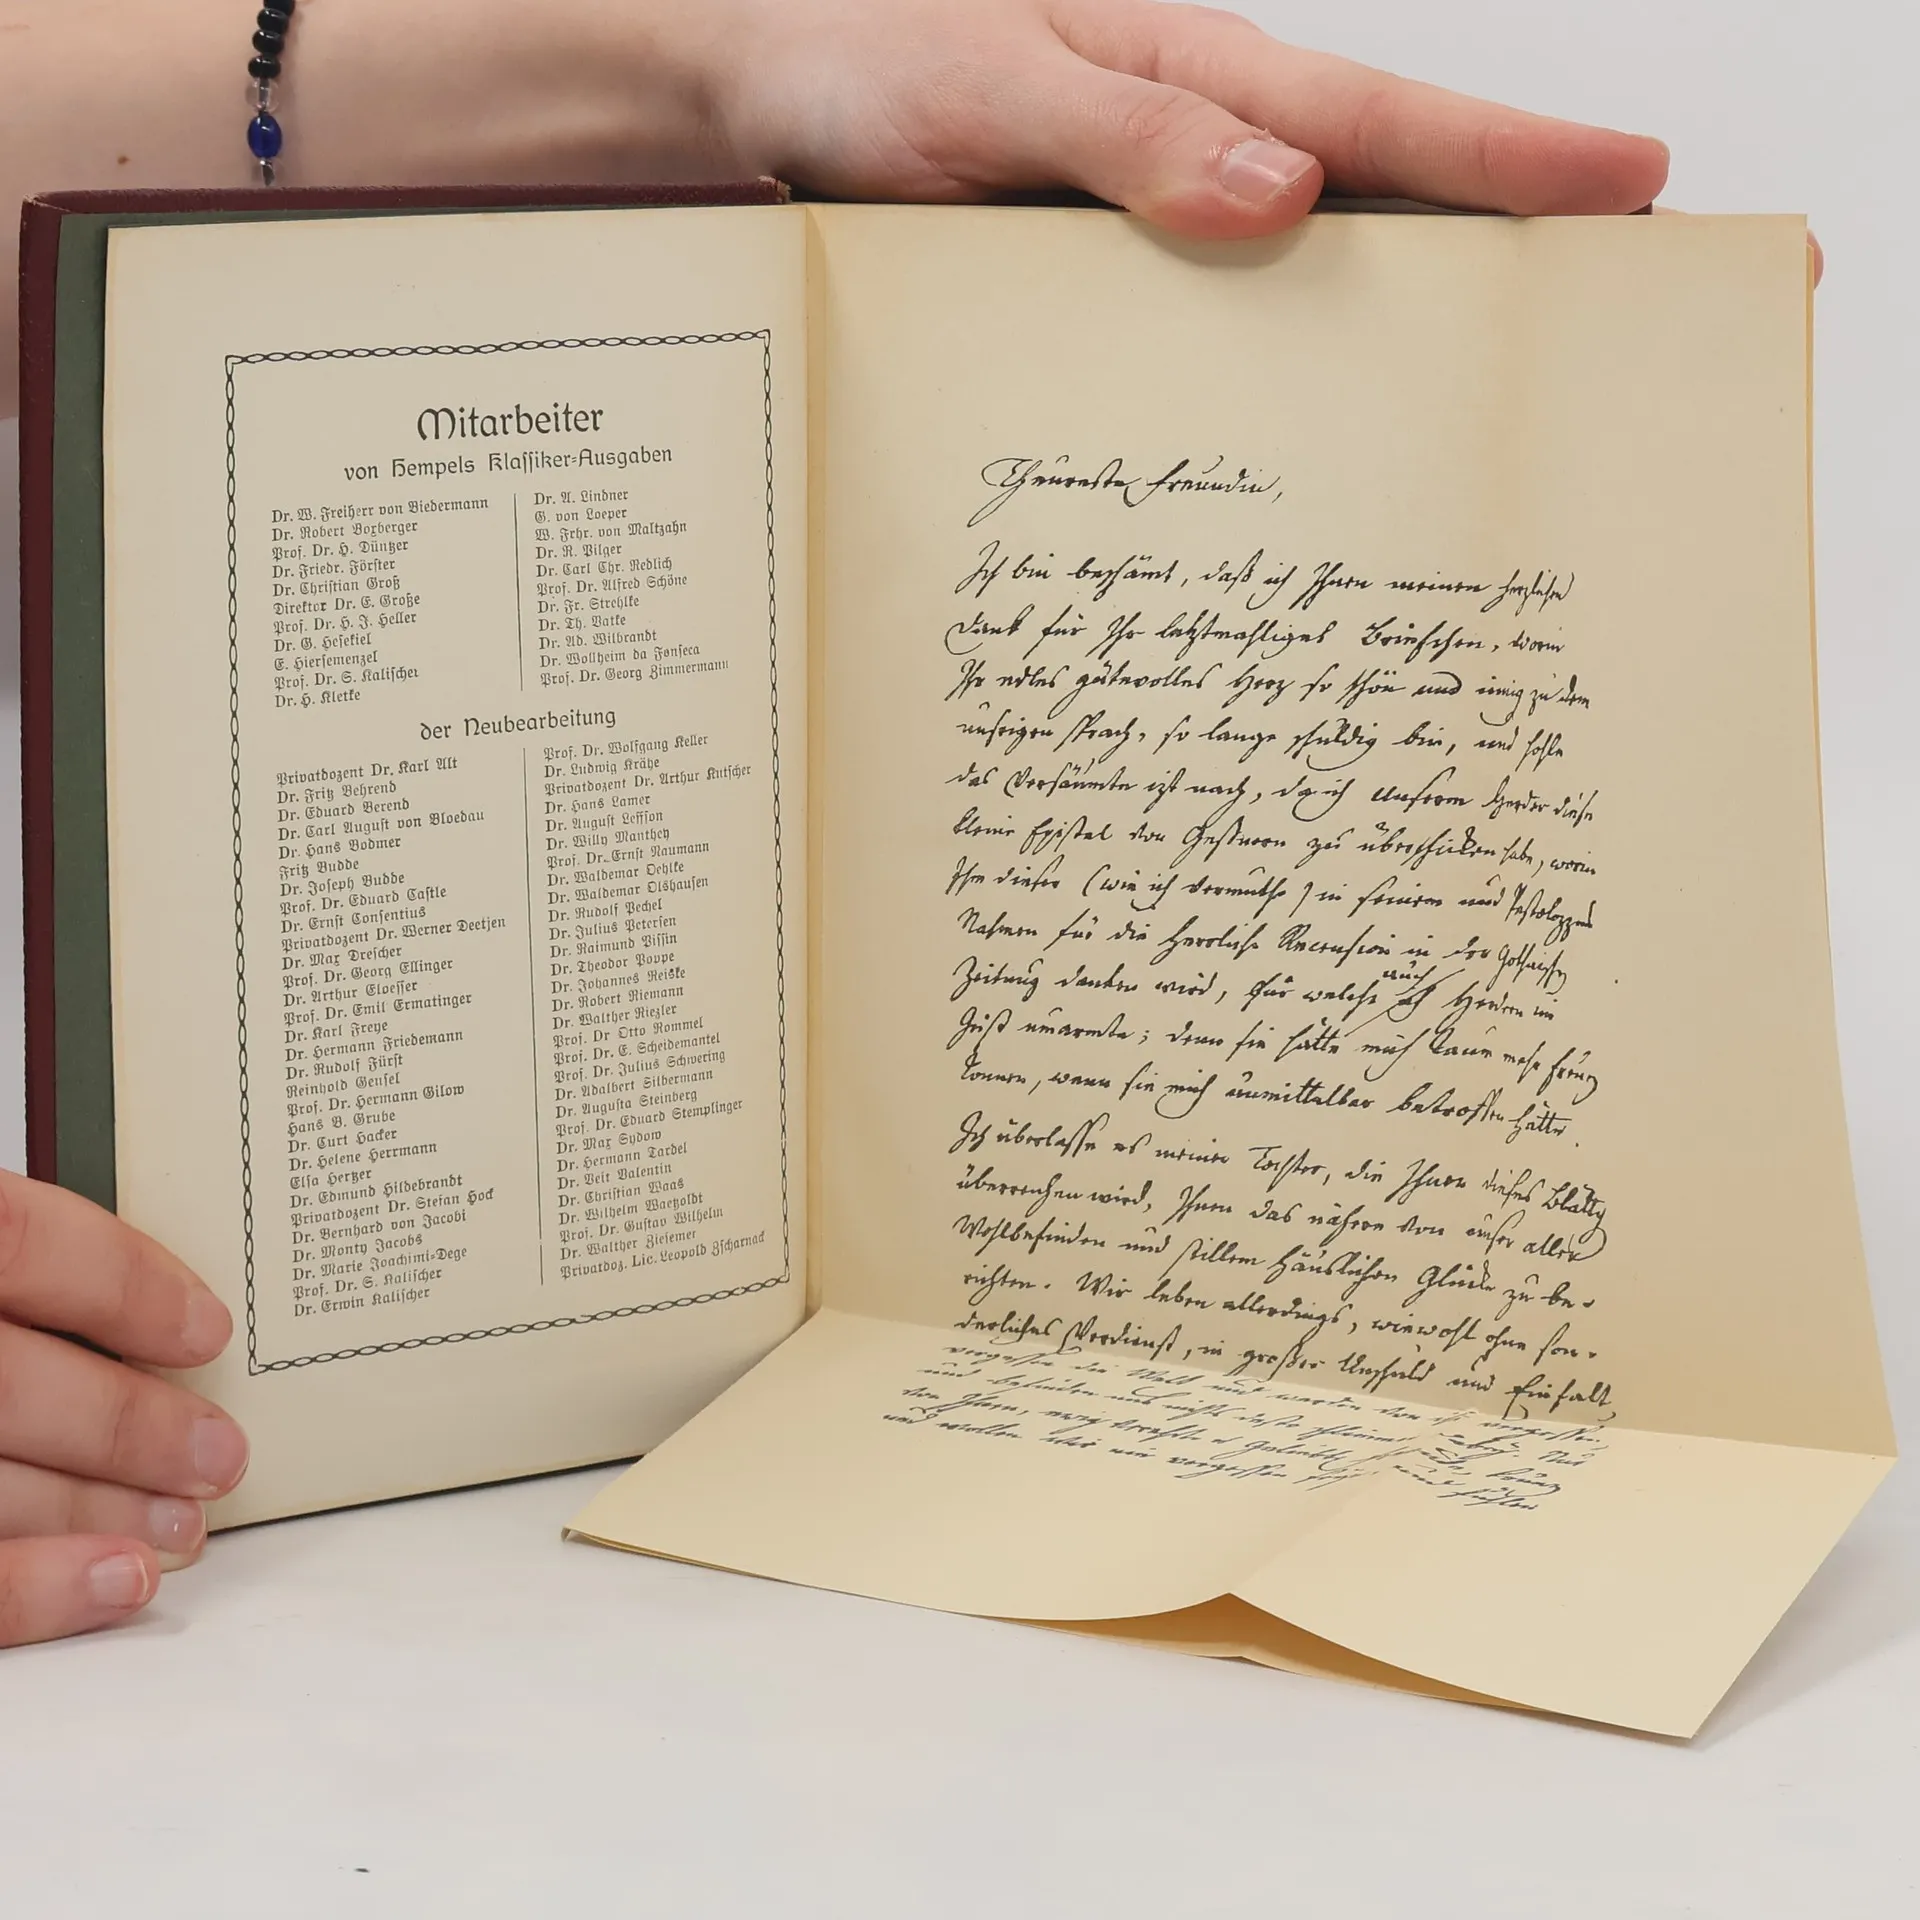 Mitarbeiter
von Hempels Klassiker-Ausgaben
Dr. W. Freiherr von Biedermann
Dr. Robert Boxberger
Prof. Dr. H. Düntzer
Dr. Friedr. Förster
Dr. Christian Groß
Direktor Dr. E. Große
Prof. Dr. H. J. Heller
Dr. G. Hesekiel
E. Hiersemenzel
Prof. Dr. S. Kalischer
Dr. H. Kletke
Dr. A. Lindner
G. von Loeper
W. Frhr. von Maltzahn
Dr. R. Pilger
Dr. Carl Chr. Redlich
Prof. Dr. Alfred Schöne
Dr. Fr. Strehlke
Dr. Th. Vatke
Dr. Ad. Wilbrandt
Dr. Wollheim da Fonseca
Prof. Dr. Georg Zimmermann
der Neubearbeitung
Privatdozent Dr. Karl Alt
Dr. Fritz Behrend
Dr. Eduard Berend
Dr. Carl August von Bloedau
Dr. Hans Bodmer
Fritz Budde
Dr. Joseph Budde
Prof. Dr. Eduard Castle
Dr. Ernst Consentius
Privatdozent Dr. Werner Deetjen
Dr. Max Drescher
Prof. Dr. Georg Ellinger
Dr. Arthur Eloesser
Prof. Dr. Emil Ermatinger
Dr. Karl Freye
Dr. Hermann Friedemann
Dr. Rudolf Fürst
Reinhold Gensel
Prof. Dr. Hermann Gilow
Hans B. Grube
Dr. Curt Hacker
Dr. Helene Herrmann
Elsa Hertzer
Dr. Edmund Hildebrandt
Privatdozent Dr. Stefan Hock
Dr. Bernhard von Jacobi
Dr. Monty Jacobs
Dr. Marie Joachimi-Dege
Prof. Dr. S. Kalischer
Dr. Erwin Kalischer
Prof. Dr. Wolfgang Keller
Dr. Ludwig Krähe
Privatdozent Dr. Arthur Kutscher
Dr. Hans Lamer
Dr. August Leffson
Dr. Willy Manthey
Prof. Dr. Ernst Naumann
Dr. Waldemar Oehlke
Dr. Waldemar Olshausen
Dr. Rudolf Pechel
Dr. Julius Petersen
Dr. Raimund Pissin
Dr. Theodor Poppe
Dr. Johannes Reiske
Dr. Robert Riemann
Dr. Walther Riezler
Prof. Dr Otto Rommel
Prof. Dr. E. Scheidemantel
Prof. Dr. Julius Schwering
Dr. Adalbert Silbermann
Dr. Augusta Steinberg
Prof. Dr. Eduard Stemplinger
Dr. Max Sydow
Dr. Hermann Tardel
Dr. Veit Valentin
Dr. Christian Waas
Dr. Wilhelm Waetzoldt
Prof. Dr. Gustav Wilhelm
Dr. Walther Ziesemer
Privatdoz. Lic. Leopold Zscharnack
Theureste Freundin,
Ich bin beschämt, daß ich Ihnen meinen herzlichen
Dank für Ihr letztmahliges Briefchen, worin
Ihr edles gütevolles Herz so schön und innig zu dem
unsrigen sprach, so lange schuldig bin, und hohle
das Versäumte izt nach, da ich unserm Herder diese
kleine Epistel von Geßnern zu überschicken habe, worin
Ihm dieser (wie ich vermuthe) in seinem und Pestalozzens
Nahmen für die herrliche Recension in der Gothaischen
Zeitung danken wird, für welche auch ich Herdern im
Geist umarmte; denn sie hätte mich kaum mehr freuen
können, wenn sie mich unmittelbar betroffen hätte.
Ich überlasse es meiner Tochter, die Ihnen dieses Blättchen
überreichen wird, Ihnen das nähere von unser aller
Wohlbefinden und stillem Häuslichen Glücke zu be-
richten. Wir leben allerdings, wiewohl ohne son-
derliches Verdienst, in großer Unschuld und Einfalt,
vergessen die Welt und werden von ihr vergessen,
und befinden uns nichts desto schlimmer dabey. Nur
von Ihnen, ewig werthe und Geliebte Freunde, können
und wollen wir nie vergessen seyn und fühlen